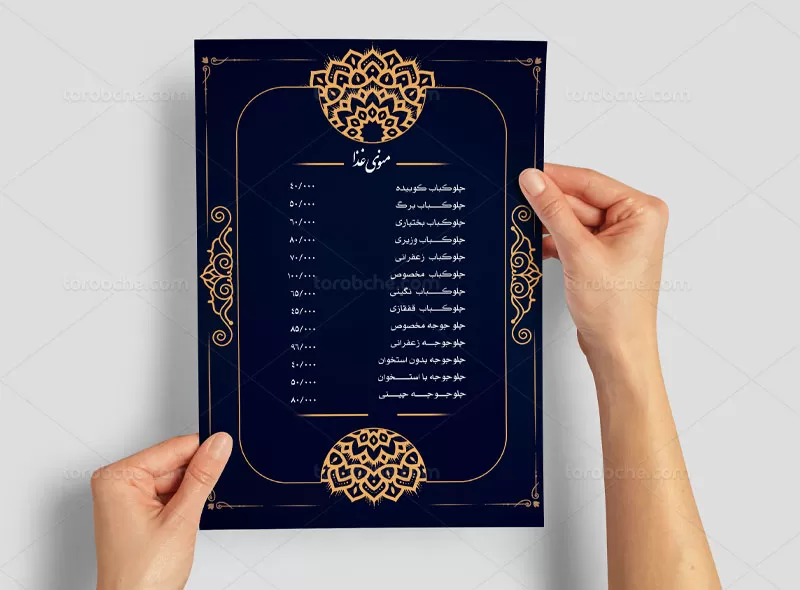 منوی غذا
چلوکباب کوبیده ۴۰/۰۰۰
چلوکباب برگ ۵۰/۰۰۰
چلوکباب بختیاری ۶۰/۰۰۰
چلوکباب وزیری ۸۰/۰۰۰
چلوکباب زعفرانی ۷۰/۰۰۰
چلوکباب مخصوص ۱۰۰/۰۰۰
چلوکباب نگینی ۶۵/۰۰۰
چلوکباب قفقازی ۴۵/۰۰۰
چلو جوجه مخصوص ۸۵/۰۰۰
چلوجوجه زعفرانی ۹۶/۰۰۰
چلوجوجه بدون استخوان ۴۰/۰۰۰
چلوجوجه با استخوان ۵۰/۰۰۰
چلوجوجه چینی ۸۰/۰۰۰
torobche.com torobche.com
torobche.com torobche.com torobche.com
torobche.com torobche.com